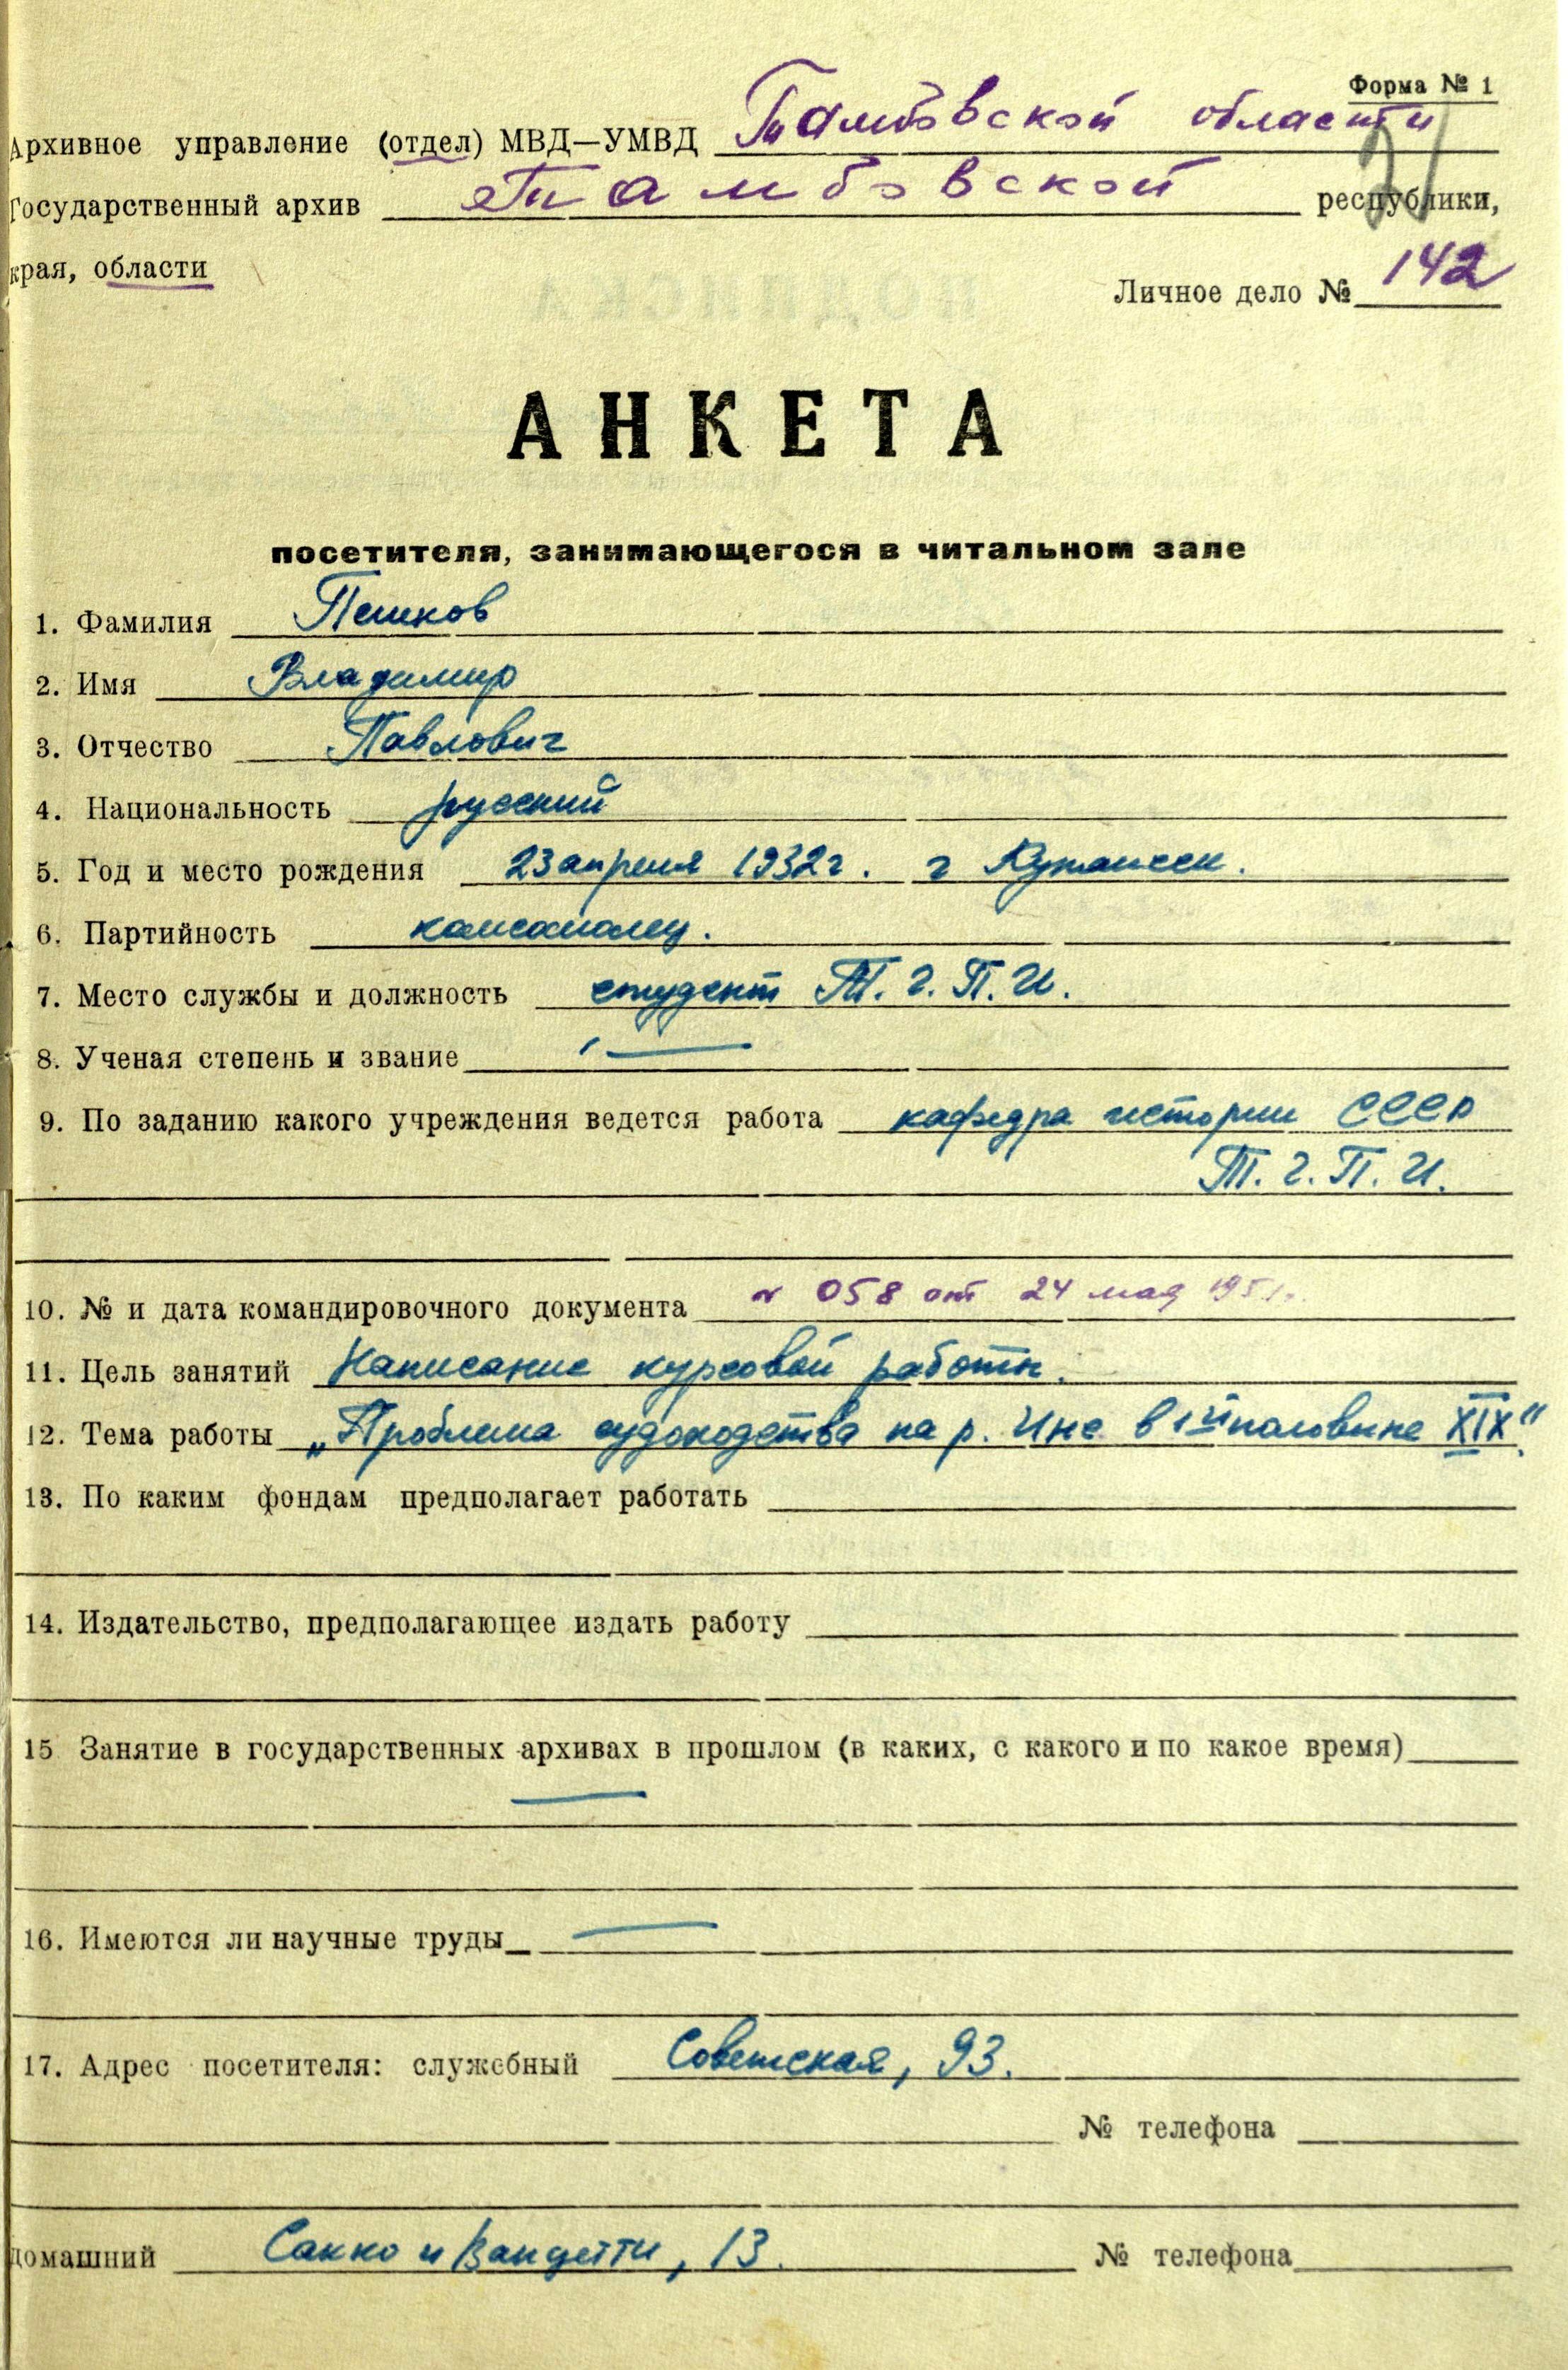 Форма № 1
Архивное управление (отдел) МВД—УМВД Тамбовской области
Государственный архив Тамбовской республики,
края, области
Личное дело № 142
АНКЕТА
посетителя, занимающегося в читальном зале
1. Фамилия Пешков
2. Имя Владимир
3. Отчество Павлович
4. Национальность русский
5. Год и место рождения 23 апреля 1932 г. г
6. Партийность комсомолец.
7. Место службы и должность студент Т. Г. П. И.
8. Ученая степень и звание —
9. По заданию какого учреждения ведется работа кафедра истории СССР
Т. Г. П. И.
10. № и дата командировочного документа № 058 от 24 мая 1951 г.
11. Цель занятий Написание курсовой работы.
12. Тема работы „Проблема судоходства на р. Цне в 1ой половине XIX".
13. По каким фондам предполагает работать
14. Издательство, предполагающее издать работу
15 Занятие в государственных архивах в прошлом (в каких, с какого и по какое время)
—
16. Имеются ли научные труды —
17. Адрес посетителя: служебный Советская, 93.
№ телефона
домашний Сакко и Ванцетти, 13. № телефона